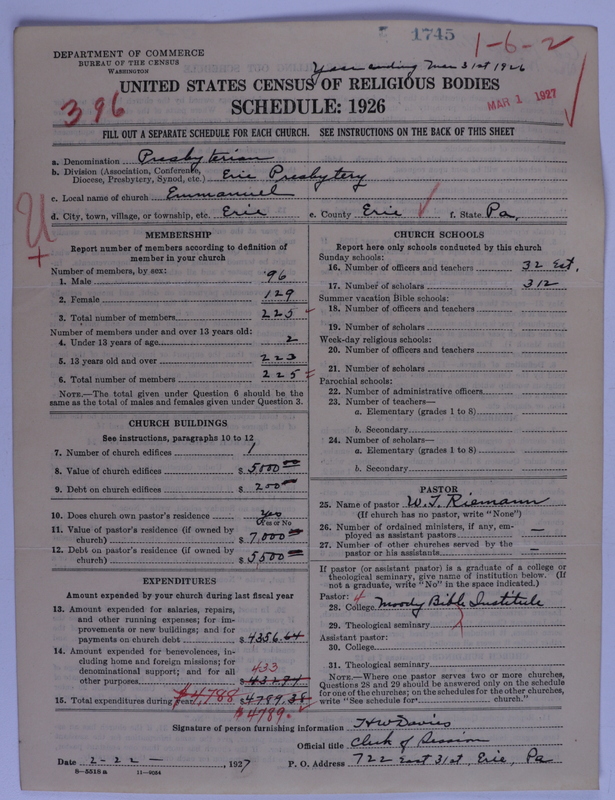 1745
1-6-2
DEPARTMENT OF COMMERCE
BUREAU OF THE CENSUS
WASHINGTON
Year ending Mar 31st 1926
UNITED STATES CENSUS OF RELIGIOUS BODIES
SCHEDULE: 1926
MAR 1 1927
396
FILL OUT A SEPARATE SCHEDULE FOR EACH CHURCH. SEE INSTRUCTIONS ON THE BACK OF THIS SHEET
a. Denomination Presbyterian
b. Division (Association, Conference, Diocese, Presbytery, Synod, etc.) Erie Presbytery
c. Local name of church Emmanuel
d. City, town, village, or township, etc. Erie e. County Erie f. State Pa.
MEMBERSHIP
Report number of members according to definition of
member in your church
Number of members, by sex:
1. Male 96
2. Female 129
3. Total number of members 225
Number of members under and over 13 years old:
4. Under 13 years of age 2
5. 13 years old and over 223
6. Total number of members 225
NOTE.—The total given under Question 6 should be
same as the total of males and females given under Question 3.
CHURCH BUILDINGS
See instructions, paragraphs 10 to 12
7. Number of church edifices 1
8. Value of church edifices $ 5,000 00
9. Debt on church edifices $ 200 00
10. Does church own pastor's residence yes
Yes or No
11. Value of pastor's residence (if owned by
church) $ 7,000 00
12. Debt on pastor's residence (if owned by
church) $ 5,500
EXPENDITURES
Amount expended by your church during last fiscal year
13. Amount expended for salaries, repairs,
and other running expenses; for im-
provements or new buildings; and for
payments on church debt $ 4356.64
14. Amount expended for benevolences, in-
cluding home and foreign missions; for
denominational support; and for all 433
other purposes
15. Total expenditures during year $4788 $ 4789.38
$4789.
CHURCH SCHOOLS
Report here only schools conducted by this church
Sunday schools:
16. Number of officers and teachers 32 Est.
17. Number of scholars 312
Summer vacation Bible schools:
18. Number of officers and teachers
19. Number of scholars
Week-day religious schools:
20. Number of officers and teachers
21. Number of scholars
Parochial schools:
22. Number of administrative officers
23. Number of teachers—
a. Elementary (grades 1 to 8)
b. Secondary
24. Number of scholars—
a. Elementary (grades 1 to 8)
b. Secondary
PASTOR
25. Name of pastor W. J. Riemann
(If church has no pastor, write "None")
26. Number of ordained ministers, if any, em-
ployed as assistant pastors —
27. Number of other churches served by the
pastor or his assistants —
If pastor (or assistant pastor) is a graduate of a college or
theological seminary, give name of institution below. (If
not a graduate, write "No" in the space indicated.)
Pastor: 4
28. College Moody Bible Institute
29. Theological seminary
Assistant pastor:
30. College
31. Theological seminary
NOTE.—Where one pastor serves two or more churches,
Questions 28 and 29 should be answered only on the schedule
for one of the churches; on the schedules for the other churches,
write "See schedule for church."
Signature of person furnishing information H W Davies
Official title Clerk of Session
Date 2-22- , 1927 P. O. Address 722 East 31st, Erie, Pa
8—5518 a 11—9034